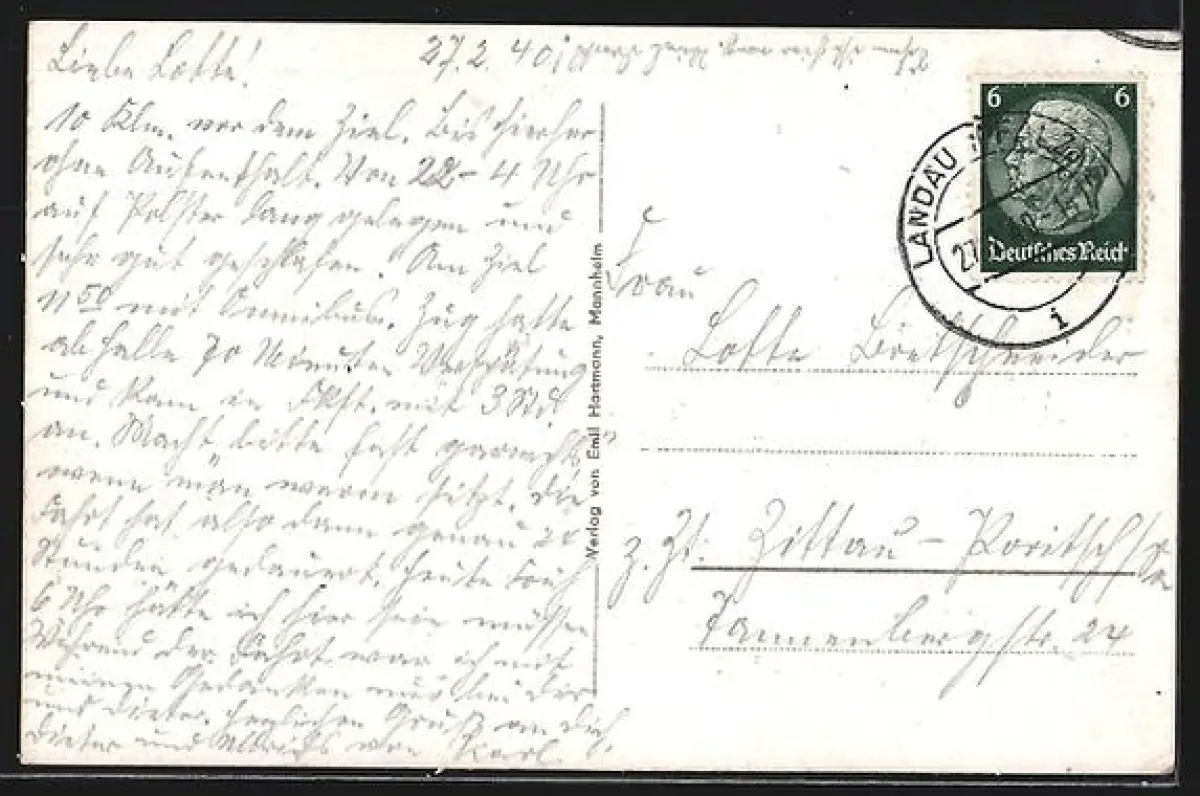 Liebe Lotte!
27.2.40
10 Klm. vor dem Ziel. Bis hierher
ohne Aufenthalt. Von 22-4 Uhr
auf Polster lang gelegen und
sehr gut geschlafen. Am Ziel
11 50 mit Omnibus. Zug hatte
ab Halle 70 Minuten Verspätung
und kam in Fkft. mit 3 Std.
an. Macht bitte fast garnichts
wenn man warm sitzt. Die
Fahrt hat also dann genau 24
Stunden gedauert. Heute früh
6 Uhr hätte ich hier sein müssen
Während der Fahrt war ich mit
meinen Gedanken nur bei Dir
und Dieter. Herzlichen Gruß an Dich,
Dieter und von Karl.
Verlag von Emil Hartmann, Mannheim
6 6
Deutsches Reich
LANDAU (PFALZ)
27.
i
Frau
Lotte Bretschneider
z. Zt. Zittau-Poritsch/Sa
Tannenbergstr. 24